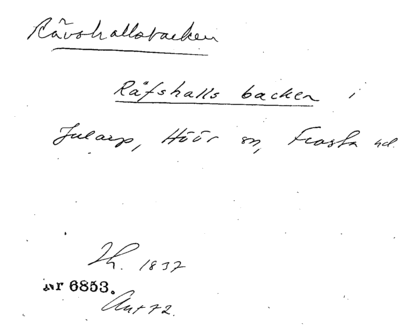 Rävshallsbacken
Räfshalls backen i
Jularp, Höör sn, Frosta hd.
Th. 1837
Nr 6853.
Ant 72.